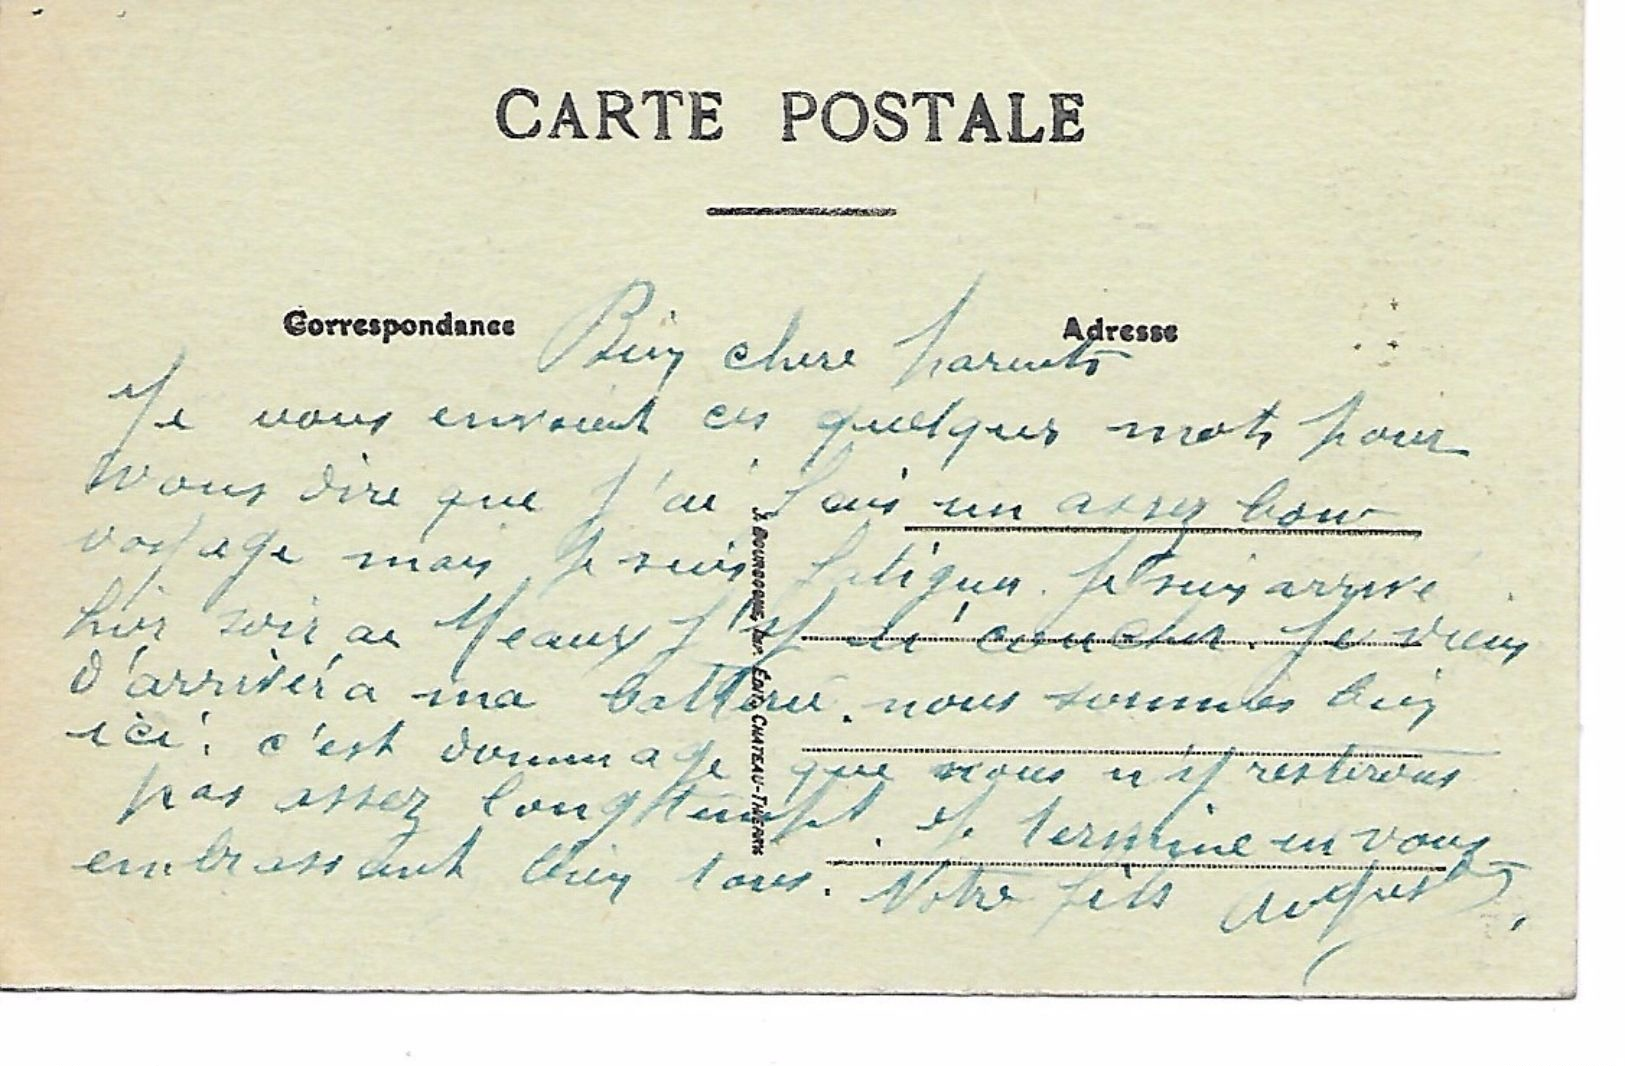 CARTE POSTALE
Correspondance
Adresse
Bien chere parents
Je vous envoient ces quelques mots pour
vous dire que j'ai fais un assez bon
voyage mais je suis fatiguer. je suis arrivé
hier soir a Meaux j'y ai coucher. Je viens
d'arriver a ma batterie. nous sommes bien
ici. c'est dommage que nous n'y resterons
pas assez longtempt. Je termine en vous
embrassant bien tous. Votre fils August
J. BOURGOGNE, IMP. ÉDIT. CHATEAU-THIERRY